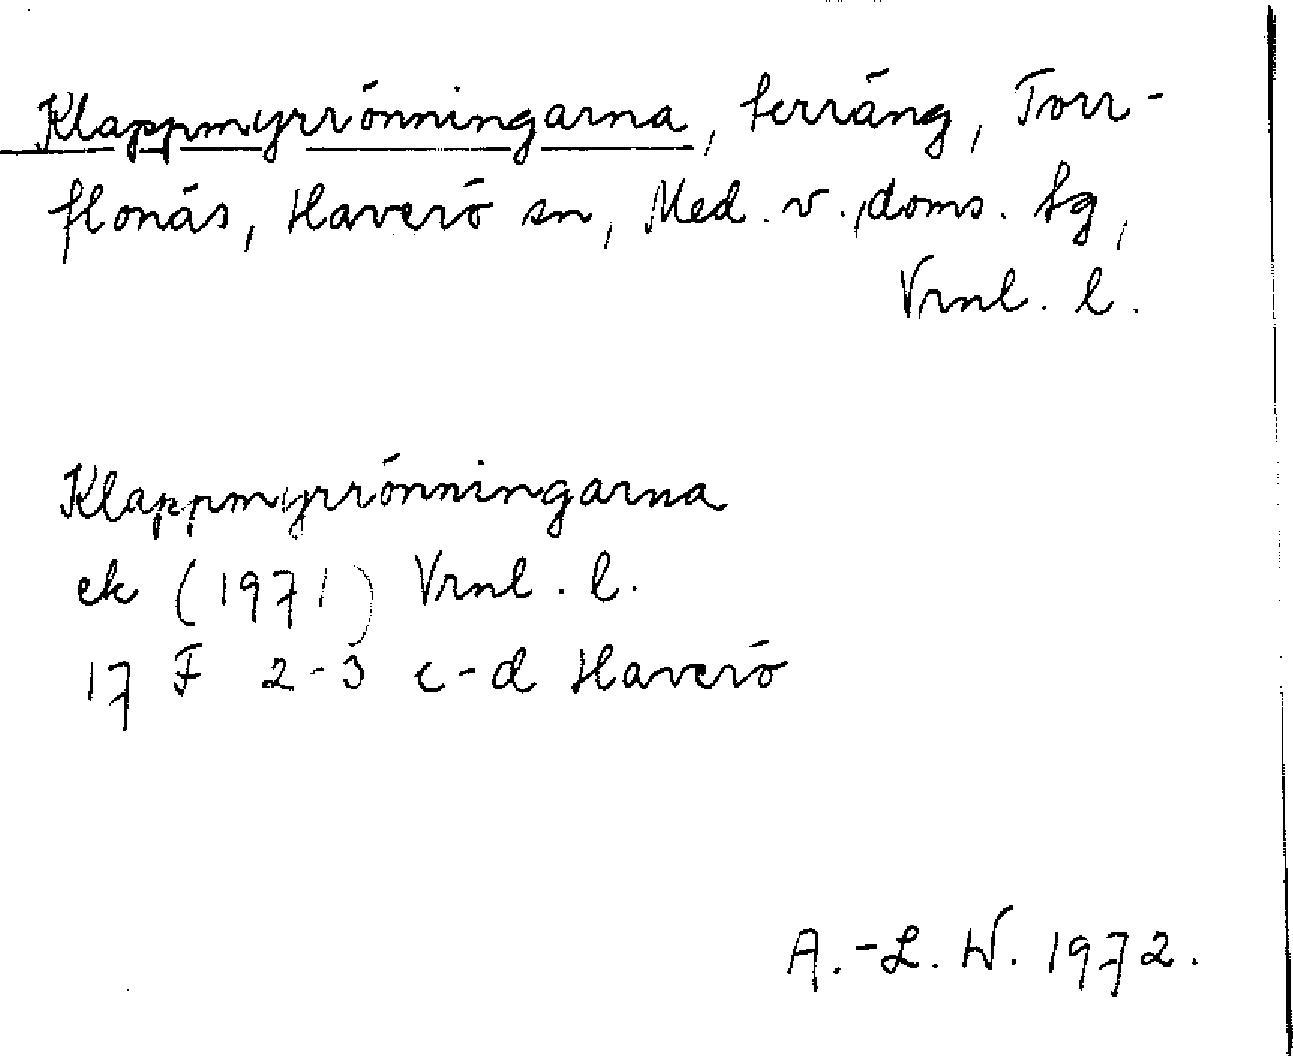 Klappmyrrönningarna, terräng, Torr-
flonäs, Haverö sn, Med. v., doms. tg,
Vrnl. l.
Klappmyrrönningarna
ek (1971) Vrnl. l.
17 F 2-3 c-d Haverö
A.-L. W. 1972.